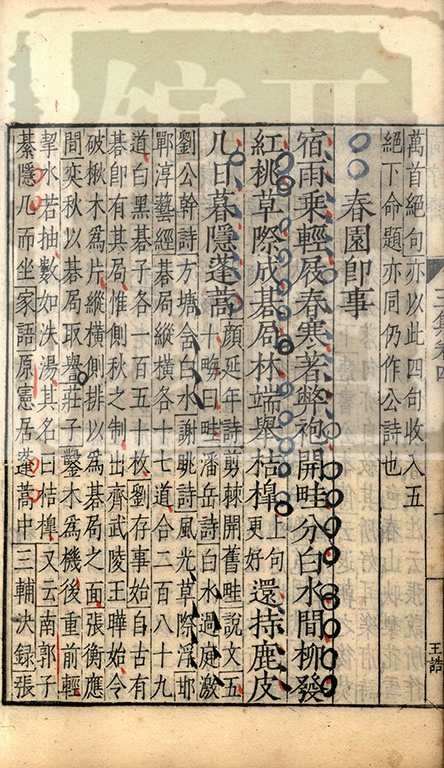 萬首絕句亦以此四句收入五
絕下命題亦同仍作公詩也
春園即事
宿雨乘輕屐春寒著弊袍開畦分白水間柳發
紅桃草際成碁局林端舉桔橰上句更好還持鹿皮
几日暮隱蓬蒿
顏延年詩剪棘開舊畦說文五
十畮曰畦潘岳詩白水過庭激
劉公幹詩方塘含白水謝眺詩風光草際浮邯
鄲淳藝經碁局縱橫各十七道合二百八十九
道白黑碁子各一百五十枚劉存事始自古有
碁即有其局惟側秋之制出齊武陵王曄始令
破楸木為片縱橫側排以為碁局之面張衡應
間奕秋以碁局取譽莊子鑿木為機後重前輕
挈水若抽數如泆湯其名曰桔橰又云南郭子
綦隱几而坐家語原憲居蓬蒿中三輔決録張
王誥